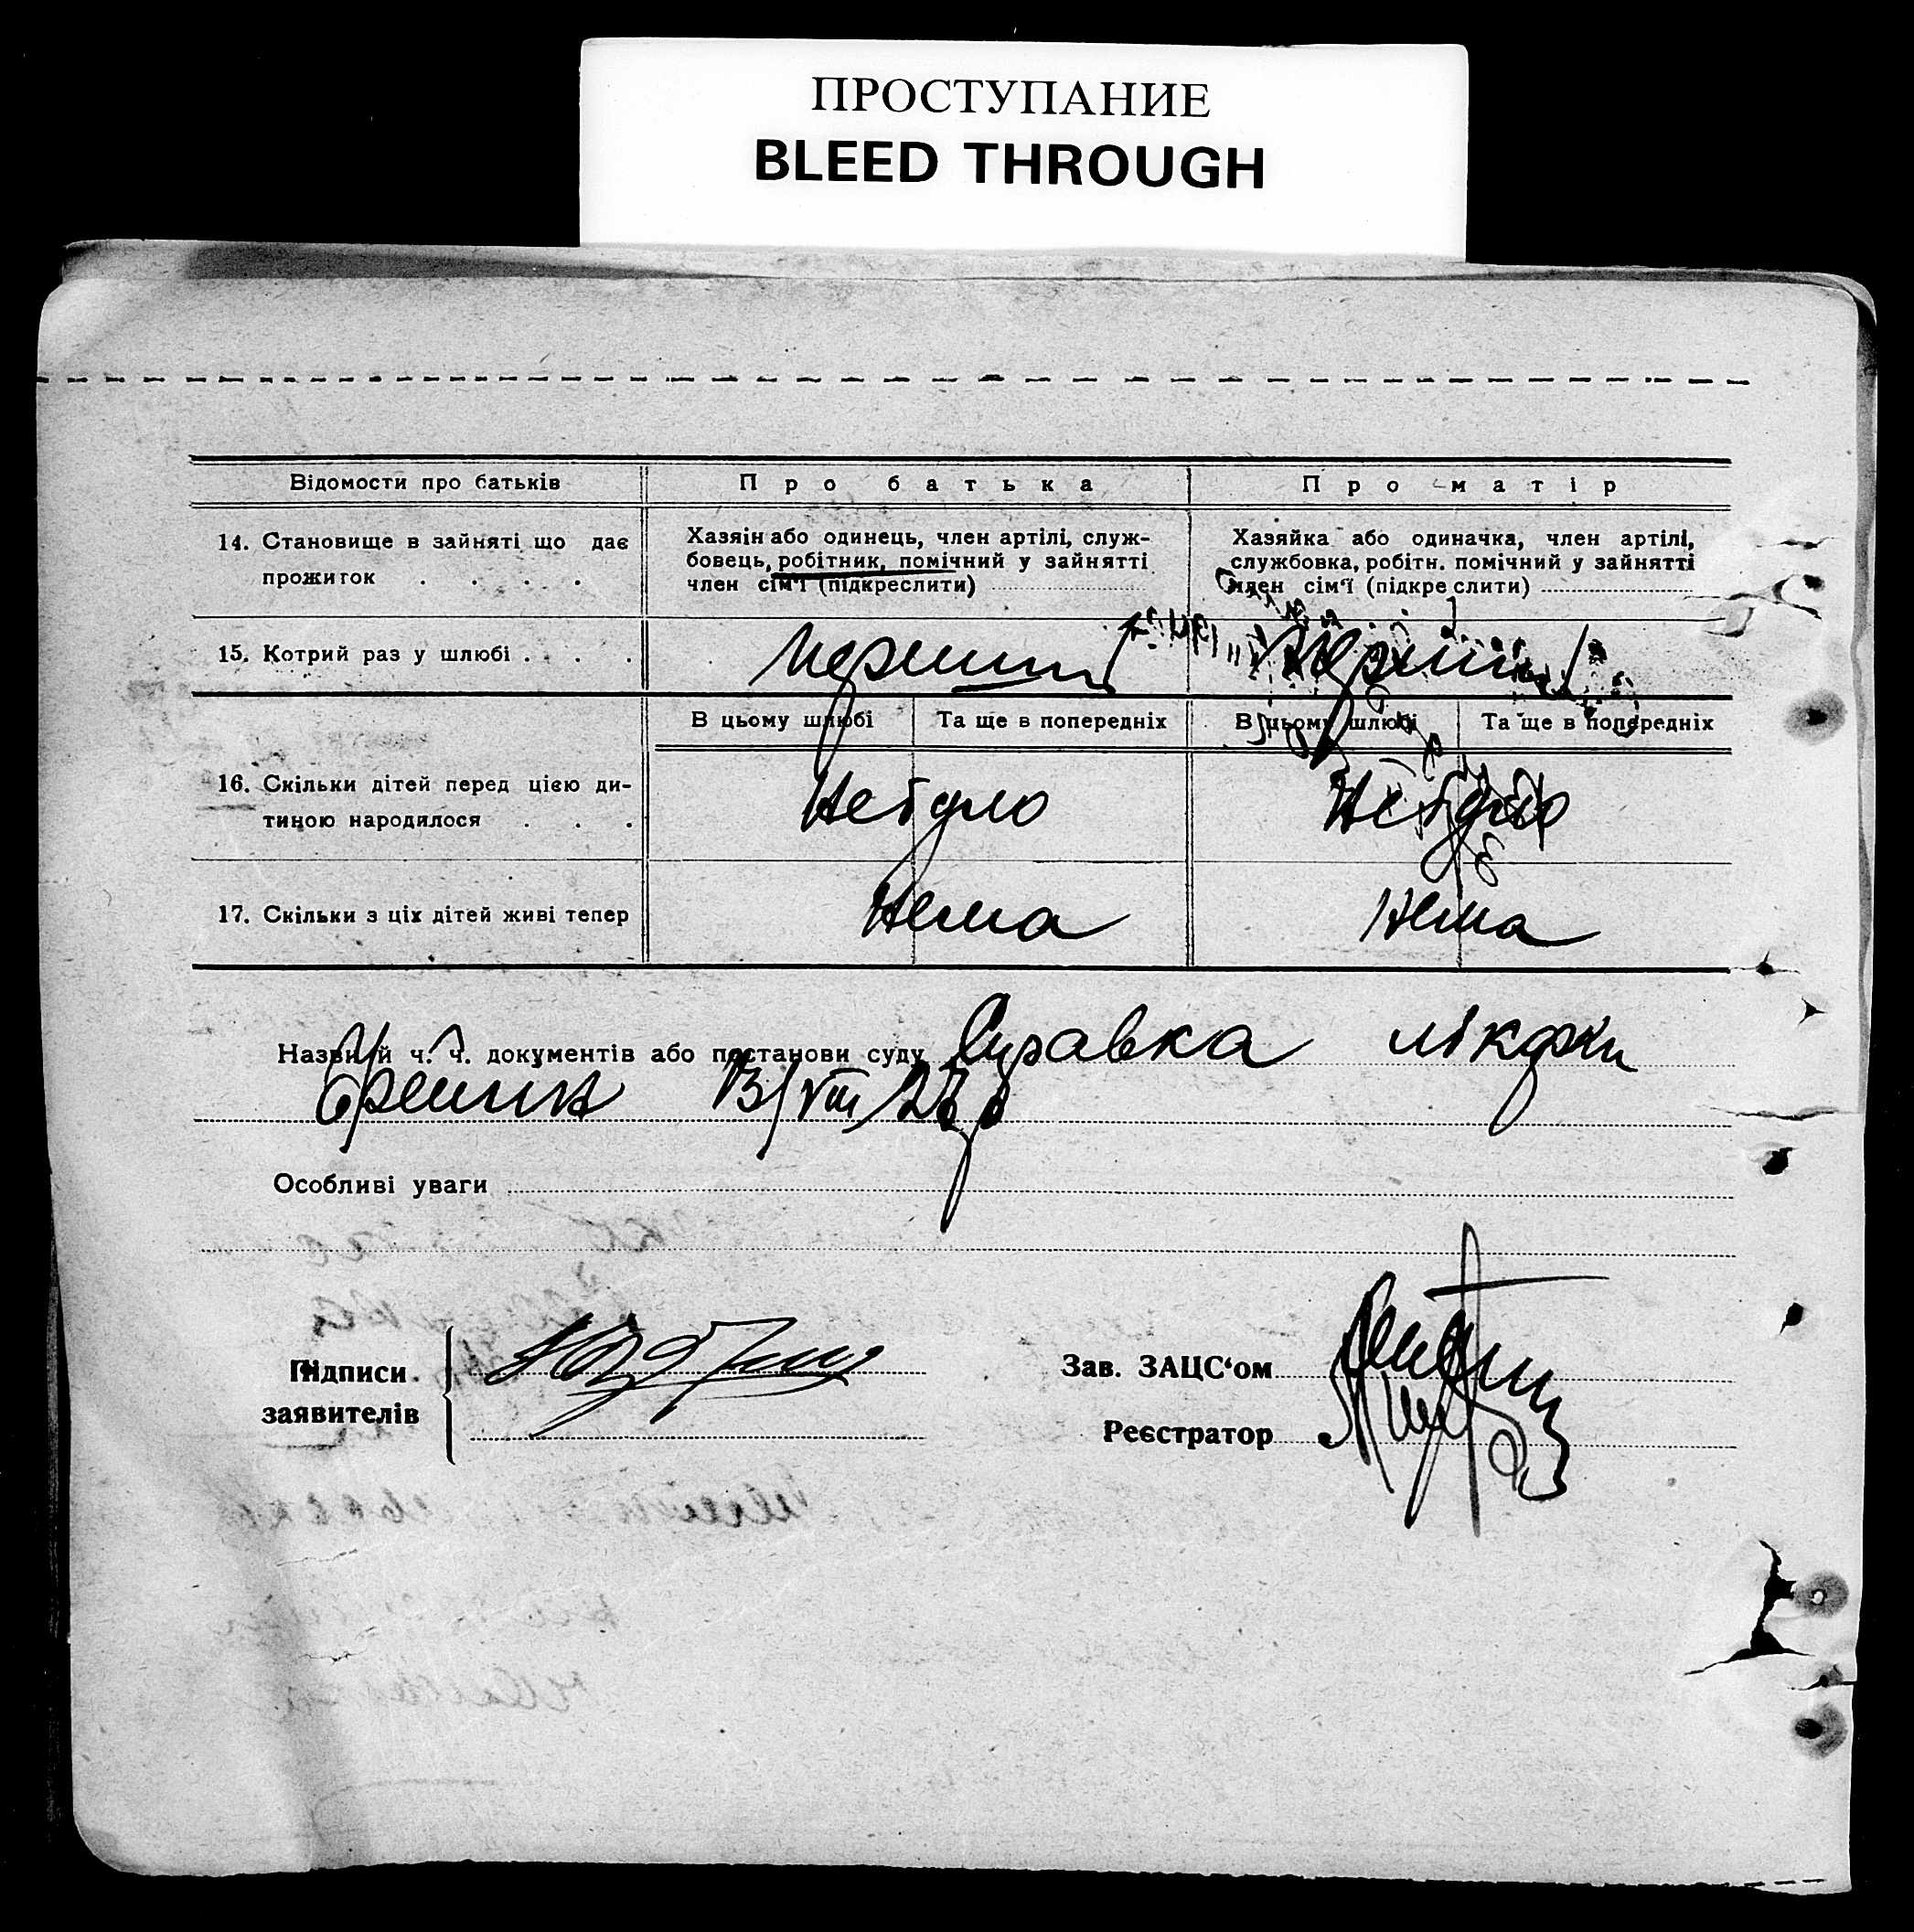 ПРОСТУПАНИЕ
BLEED THROUGH
Відомости про батьків Про батька Про матір
14. Становище в зайняті що дає прожиток . . . .
Хазяін або одинець, член артілі, служ-
бовець, робітник, помічний у зайнятті
член сім'ї (підкреслити)
Хазяйка або одиначка, член артілі,
службовка, робітн. помічний у зайнятті
член сім'ї (підкреслити)
15. Котрий раз у шлюбі . . . Перший Перший
В цьому шлюбі Та ще в попередніх В цьому шлюбі Та ще в попередніх
16. Скільки дітей перед цією ди-
тиною народилося . . . Не було Не було
17. Скільки з ціх дітей живі тепер Нема Нема
Назви й ч. ч. документів або постанови суду Справка
13/VIII
Особливі уваги
Підписи заявителів
Зав. ЗАЦС'ом
Реєстратор